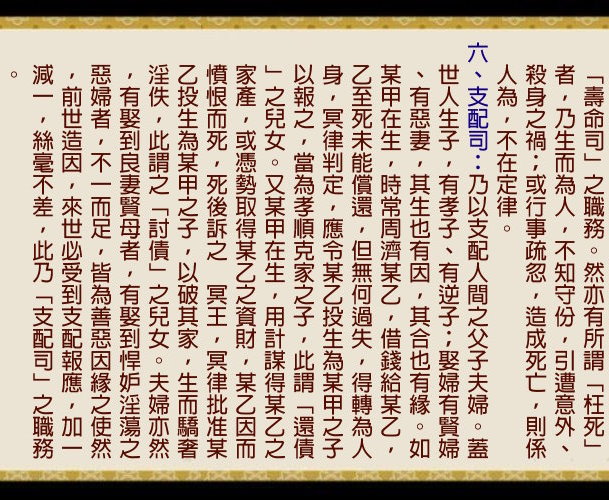 「壽命司」之職務。然亦有所謂「枉死」
者，乃生而為人，不知守份，引遭意外、
殺身之禍；或行事疏忽，造成死亡，則係
人為，不在定律。
六、支配司：乃以支配人間之父子夫婦。蓋
世人生子，有孝子、有逆子；娶婦有賢婦
、有惡妻，其生也有因，其合也有緣。如
某甲在生，時常周濟某乙，借錢給某乙，
乙至死未能償還，但無何過失，得轉為人
身，冥律判定，應令某乙投生為某甲之子
以報之，當為孝順克家之子，此謂「還債
」之兒女。又某甲在生，用計謀得某乙之
家產，或憑勢取得某乙之資財，某乙因而
憤恨而死，死後訴之　冥王，冥律批准某
乙投生為某甲之子，以破其家，生而驕奢
淫佚，此謂之「討債」之兒女。夫婦亦然
，有娶到良妻賢母者，有娶到悍妒淫蕩之
惡婦者，不一而足，皆為善惡因緣之使然
，前世造因，來世必受到支配報應，加一
減一，絲毫不差，此乃「支配司」之職務
。